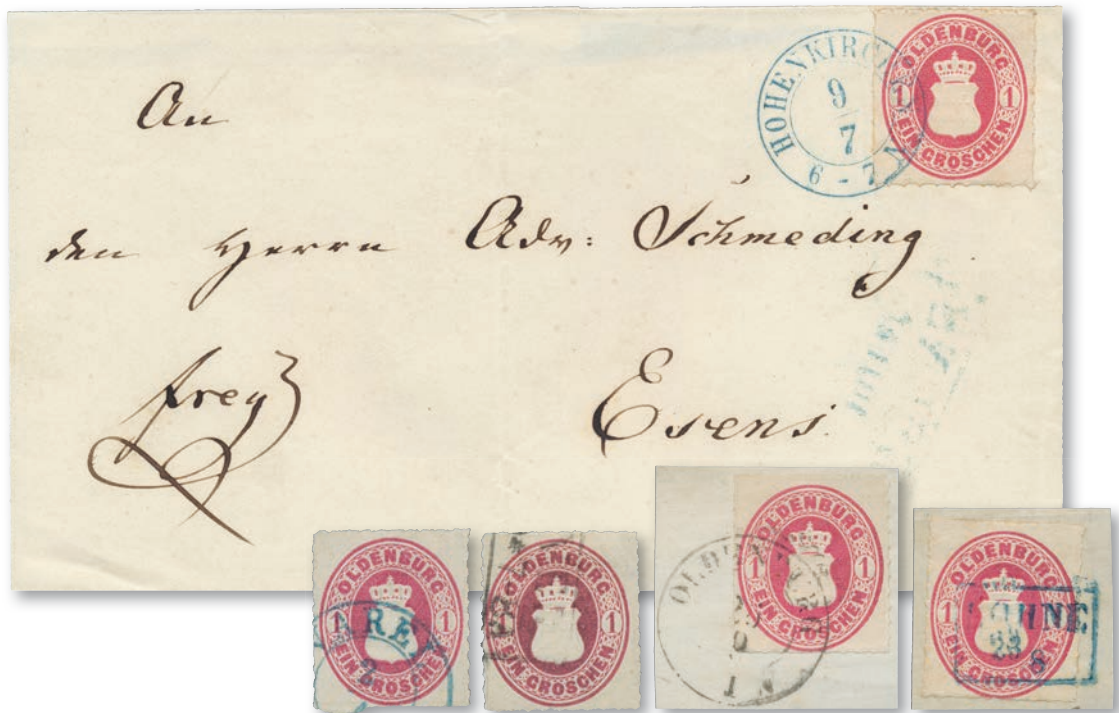 HOHENKIRCHEN
9
7
6 - 7 N
OLDENBURG
1 1
EIN GROSCHEN
An
den Herrn Adv: Schmeding
frey
Esens.
OLDENBURG
1 1
EIN GROSCHEN
VAREL
OLDENBURG
1 1
EIN GROSCHEN
OLDENBURG
1 1
EIN GROSCHEN
OLD
1 N
OLDENBURG
1
EIN GROSCHEN
LOHNE
23
8